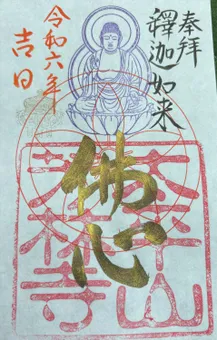 奉拝
釋迦如来
佛心
令和六年
吉日
太平山
天林寺